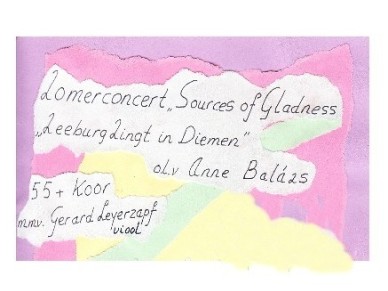 Zomerconcert „Sources of Gladness
„Zeeburg Zingt in Diemen"
o.l.v Anne Balázs
55+ Koor
m.m.v. Gerard Leyerzapf
viool